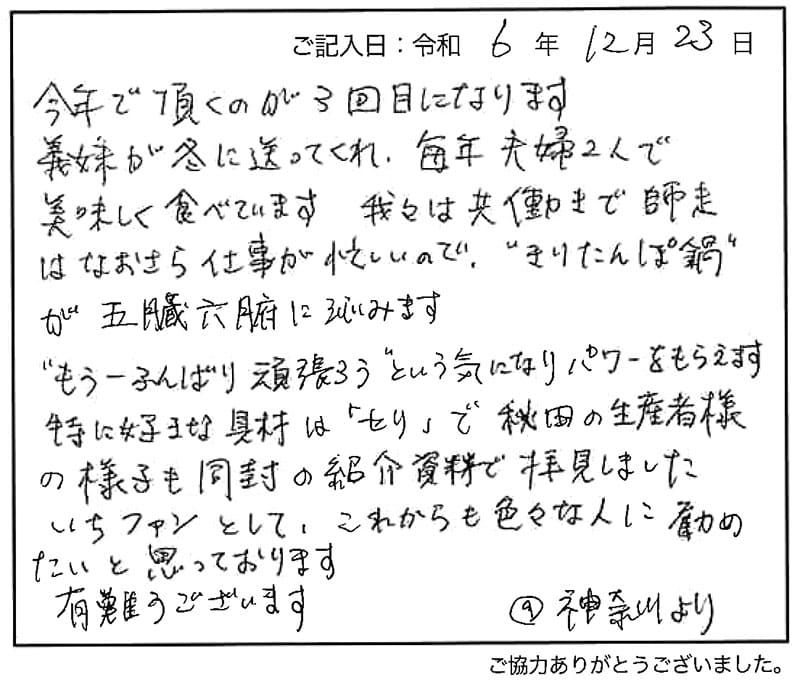 ご記入日：令和 6 年 12月 23 日
今年で頂くのが3回目になります
義妹が冬に送ってくれ、毎年夫婦2人で
美味しく食べています 我々は共働きで師走
はなおさら仕事が忙しいので、"きりたんぽ鍋"
が五臓六腑に沁みます
"もう一ふんばり頑張ろう"という気になりパワーをもらえます
特に好きな具材は「せり」で秋田の生産者様
の様子も同封の紹介資料で拝見しました
いちファンとして、これからも色々な人に勧め
たいと思っております
有難うございます
♂ 神奈川より
ご協力ありがとうございました。